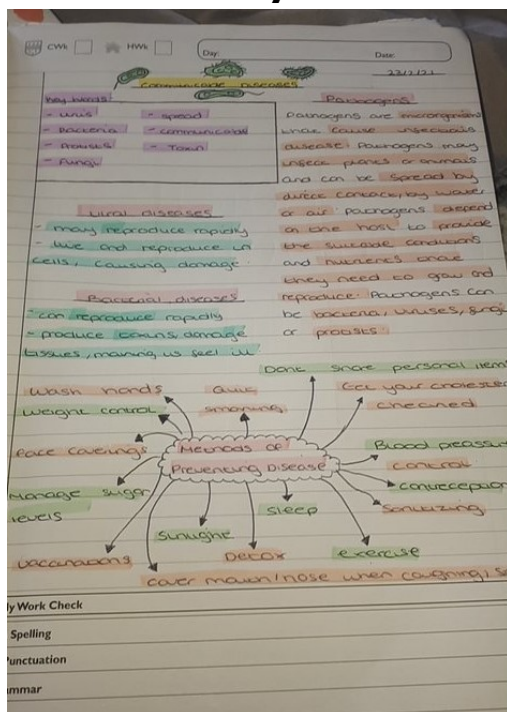 CWk HWk Day: Date:
23/2/22
Communicable Diseases
Key words:
- virus
- Bacteria
- Protists
- Fungi
- spread
- communicable
- Toxin
Viral diseases
- may reproduce rapidly
- live and reproduce in
cells, causing damage.
Bacterial diseases
- can reproduce rapidly
- produce toxins, damage
tissues, making us feel ill
Pathogens
Pathogens are microorganisms
that cause infectious
disease. Pathogens may
infect plants or animals
and can be spread by
direct contact, by water
or air. Pathogens depend
on one host to provide
the suitable conditions
and nutrients that
they need to grow and
reproduce. Pathogens can
be bacteria, viruses, fungi
or protists.
Methods of
Preventing Disease
Wash hands
Weight control
Face coverings
Manage sugar
levels
vaccinations
Quit
smoking
Dont share personal item
Get your cholester
checked
Blood pressur
control
contraception
Sanitizing
exercise
sleep
Detox
Sunlight
cover mouth/nose when coughing, s
ly Work Check
Spelling
Punctuation
mmar